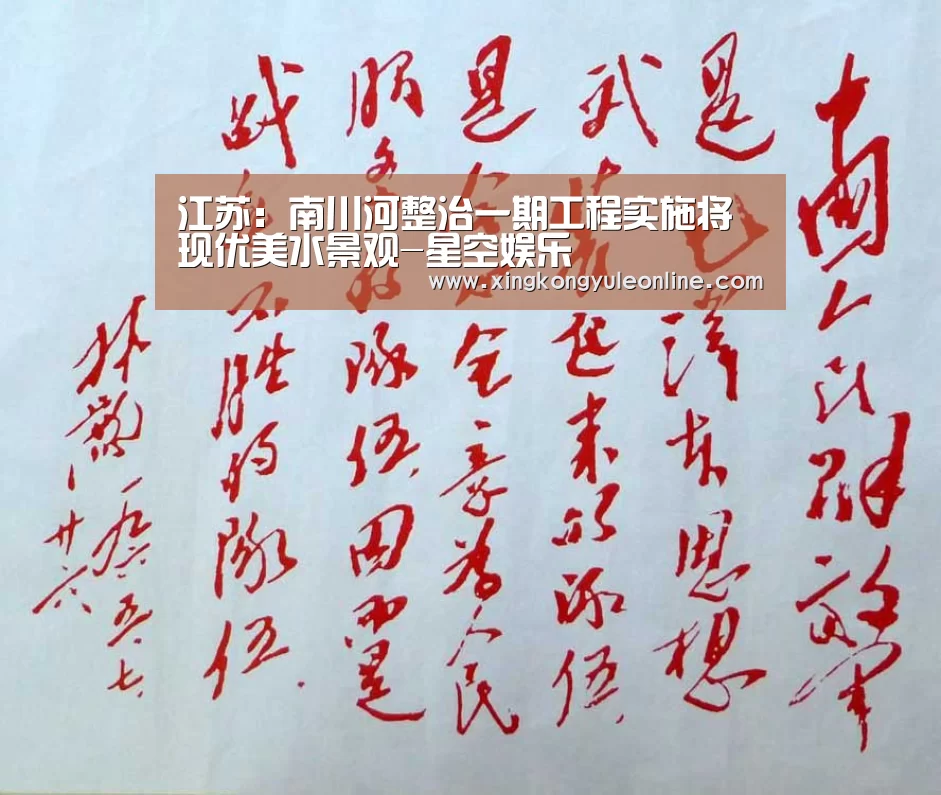 中国人民解放军
是毛泽东思想
武装起来的队伍，
是全心全意为人民
服务的队伍，因而是
战无不胜的队伍．
林彪 一九六五、七、
廿六
江苏：南川河整治一期工程实施将
现优美水景观-星空娱乐
www.xingkongyuleonline.com